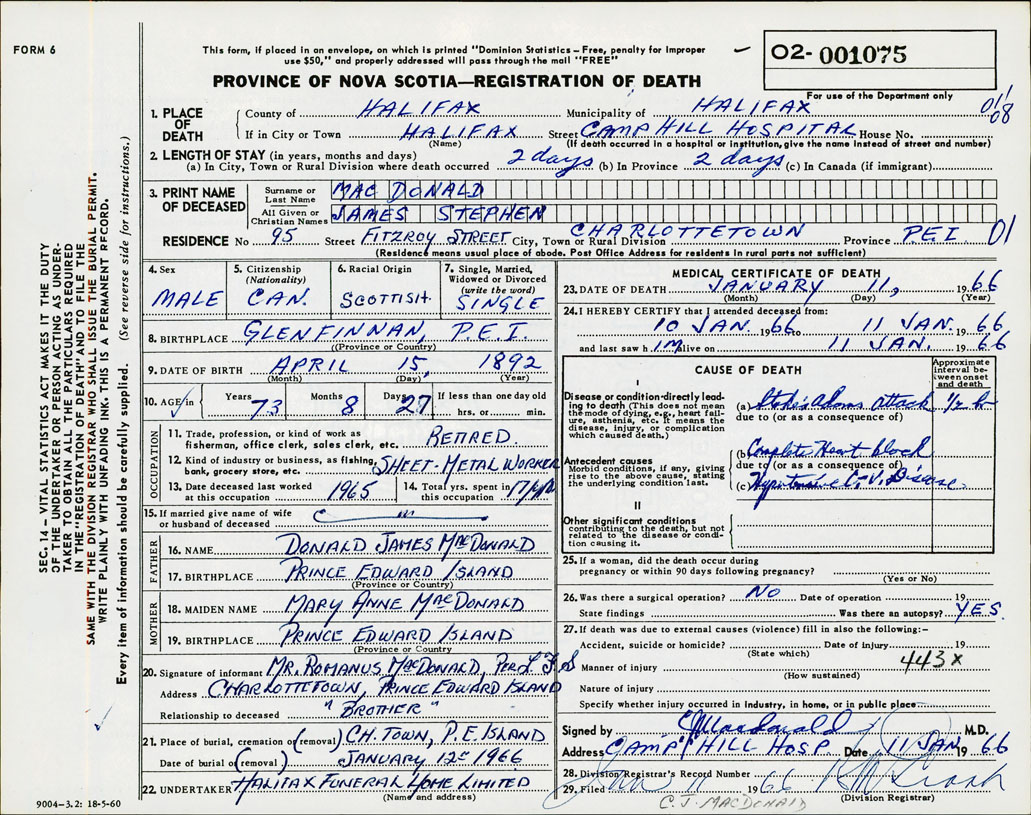 FORM 6
This form, if placed in an envelope, on which is printed "Dominion Statistics – Free, penalty for improper
use $50," and properly addressed will pass through the mail "FREE"
PROVINCE OF NOVA SCOTIA—REGISTRATION OF DEATH
02- 001075
For use of the Department only
SEC. 14 – VITAL STATISTICS ACT MAKES IT THE DUTY
OF THE UNDERTAKER OR PERSON ACTING AS UNDER-
TAKER TO OBTAIN ALL THE PARTICULARS REQUIRED
IN THE "REGISTRATION OF DEATH" AND TO FILE THE
SAME WITH THE DIVISION REGISTRAR WHO SHALL ISSUE THE BURIAL PERMIT.
WRITE PLAINLY WITH UNFADING INK. THIS IS A PERMANENT RECORD.
Every item of information should be carefully supplied. (See reverse side for instructions.)
1. PLACE OF DEATH
County of HALIFAX Municipality of HALIFAX 011 08
If in City or Town HALIFAX Street CAMP HILL HOSPITAL House No.
(Name) (If death occurred in a hospital or institution, give the name instead of street and number)
2. LENGTH OF STAY (in years, months and days)
(a) In City, Town or Rural Division where death occurred 2 days (b) In Province 2 days (c) In Canada (if immigrant)
3. PRINT NAME OF DECEASED
Surname or Last Name MAC DONALD
All Given or Christian Names JAMES STEPHEN
RESIDENCE No 95 Street FITZROY STREET City, Town or Rural Division CHARLOTTETOWN Province P.E.I 01
(Residence means usual place of abode. Post Office Address for residents in rural parts not sufficient)
4. Sex MALE
5. Citizenship (Nationality) CAN.
6. Racial Origin SCOTTISH
7. Single, Married, Widowed or Divorced (write the word) SINGLE
8. BIRTHPLACE GLENFINNAN, P.E.I.
(Province or Country)
9. DATE OF BIRTH APRIL 15, 1892
(Month) (Day) (Year)
10. AGE in Years 73 Months 8 Days 27 If less than one day old hrs. or min.
OCCUPATION
11. Trade, profession, or kind of work as
fisherman, office clerk, sales clerk, etc. RETIRED
12. Kind of industry or business, as fishing,
bank, grocery store, etc. SHEET-METAL WORKER
13. Date deceased last worked
at this occupation 1965
14. Total yrs. spent in
this occupation
15. If married give name of wife
or husband of deceased
FATHER
16. NAME DONALD JAMES MACDONALD
17. BIRTHPLACE PRINCE EDWARD ISLAND
(Province or Country)
MOTHER
18. MAIDEN NAME MARY ANNE MACDONALD
19. BIRTHPLACE PRINCE EDWARD ISLAND
(Province or Country)
20. Signature of informant MR. ROMANUS MACDONALD, PER L.F.S
Address CHARLOTTETOWN, PRINCE EDWARD ISLAND
Relationship to deceased "BROTHER"
21. Place of burial, cremation or (removal) CH.TOWN, P.E.ISLAND
Date of burial or (removal) JANUARY 12 1966
22. UNDERTAKER HALIFAX FUNERAL HOME LIMITED
(Name and address)
9004–3.2: 18-5-60
MEDICAL CERTIFICATE OF DEATH
23. DATE OF DEATH JANUARY 11, 1966
(Month) (Day) (Year)
24. I HEREBY CERTIFY that I attended deceased from:
10 JAN. 1966 to 11 JAN. 1966
and last saw him alive on 11 JAN. 1966
CAUSE OF DEATH
Approximate interval between onset and death
I
Disease or condition directly lead-
ing to death (This does not mean
the mode of dying, e.g., heart fail-
ure, asthenia, etc. It means the
disease, injury, or complication
which caused death.)
(a) Stokes Adams attack 1/2 hr
due to (or as a consequence of)
Antecedent causes
Morbid conditions, if any, giving
rise to the above cause, stating
the underlying condition last.
(b) Complete Heart block
due to (or as a consequence of)
(c) Hypertensive C.V. Disease
II
Other significant conditions
contributing to the death, but not
related to the disease or condi-
tion causing it.
25. If a woman, did the death occur during
pregnancy or within 90 days following pregnancy?
(Yes or No)
26. Was there a surgical operation? NO Date of operation 19
State findings Was there an autopsy? YES
27. If death was due to external causes (violence) fill in also the following:–
Accident, suicide or homicide? Date of injury 19
(State which)
Manner of injury 443x
(How sustained)
Nature of injury
Specify whether injury occurred in industry, in home, or in public place
Signed by CJMacdonald M.D.
Address CAMP HILL HOSP. Date 11 JAN 1966
28. Division Registrar's Record Number
29. Filed Jan 11 1966
(Division Registrar)
C. J. MACDONALD